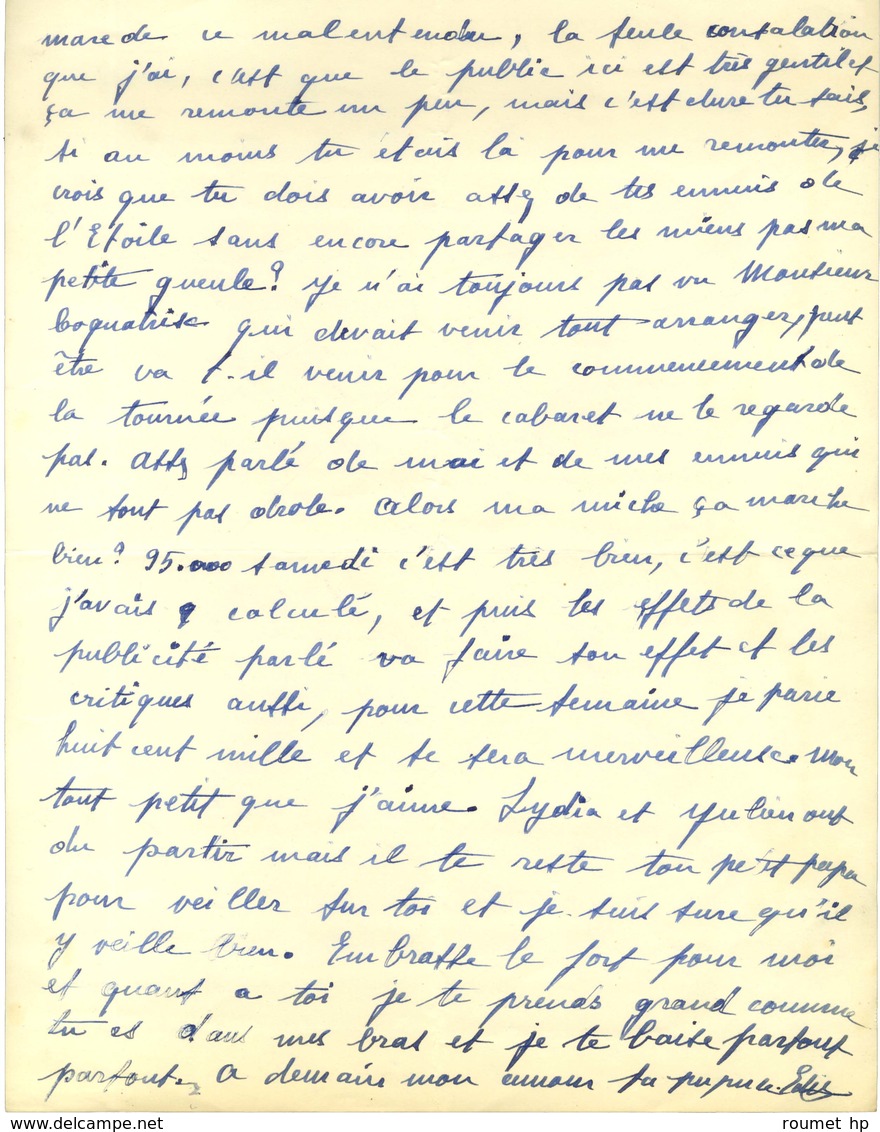 mare de ce malentendu, la seule consalation
que j'ai, c'est que le public ici est très gentil et
ça me remonte un peu, mais c'est dure tu sais,
si au moins tu étais là pour me remonter, je
crois que tu dois avoir assez de tes ennuis de
l'Etoile sans encore partager les miens pas ma
petite gueule? Je n'ai toujours pas vu Monsieur
boquatrix qui devait venir tout arranger, peut
être va t-il venir pour le commencement de
la tournée puisque le cabaret ne le regarde
pas. assez parlé de moi et de mes ennuis qui
ne sont pas drole. alors ma miche ça marche
bien? 95.000 samedi c'est très bien, c'est ce que
j'avais calculé, et puis les effets de la
publicité parlé va faire son effet et les
critiques aussi, pour cette semaine je parie
huit cent mille et se sera merveilleuse mon
tout petit que j'aime. Lydia et Julien ont
du partir mais il te reste ton petit papa
pour veiller sur toi et je suis sure qu'il
y veille bien. Embrasse le fort pour moi
et quant a toi je te prends grand comme
tu es dans mes bras et je te baise partout
partout. a demain mon amour ta